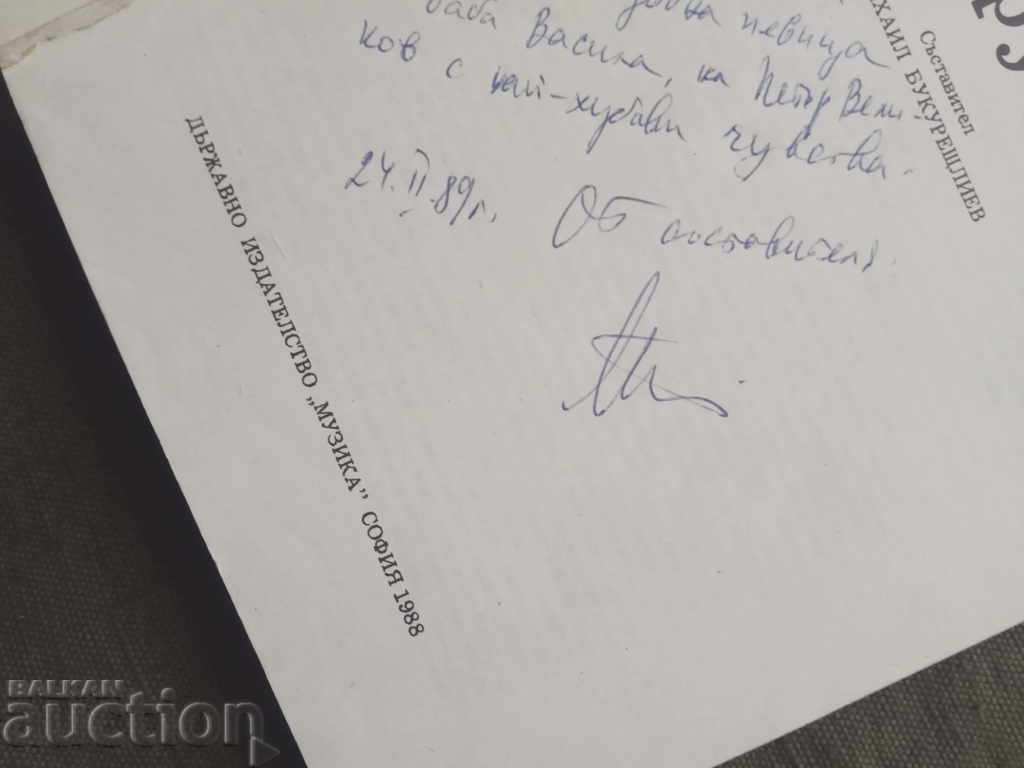 ру
Съставител
ХАИЛ БУКУРЕШЛИЕВ
добра певица
баба Васила, на Петър Вели-
ков с най-хубави чувства.
24.II.89 г.
От съставителя:
ДЪРЖАВНО ИЗДАТЕЛСТВО „МУЗИКА" СОФИЯ 1988
BALKAN
auction